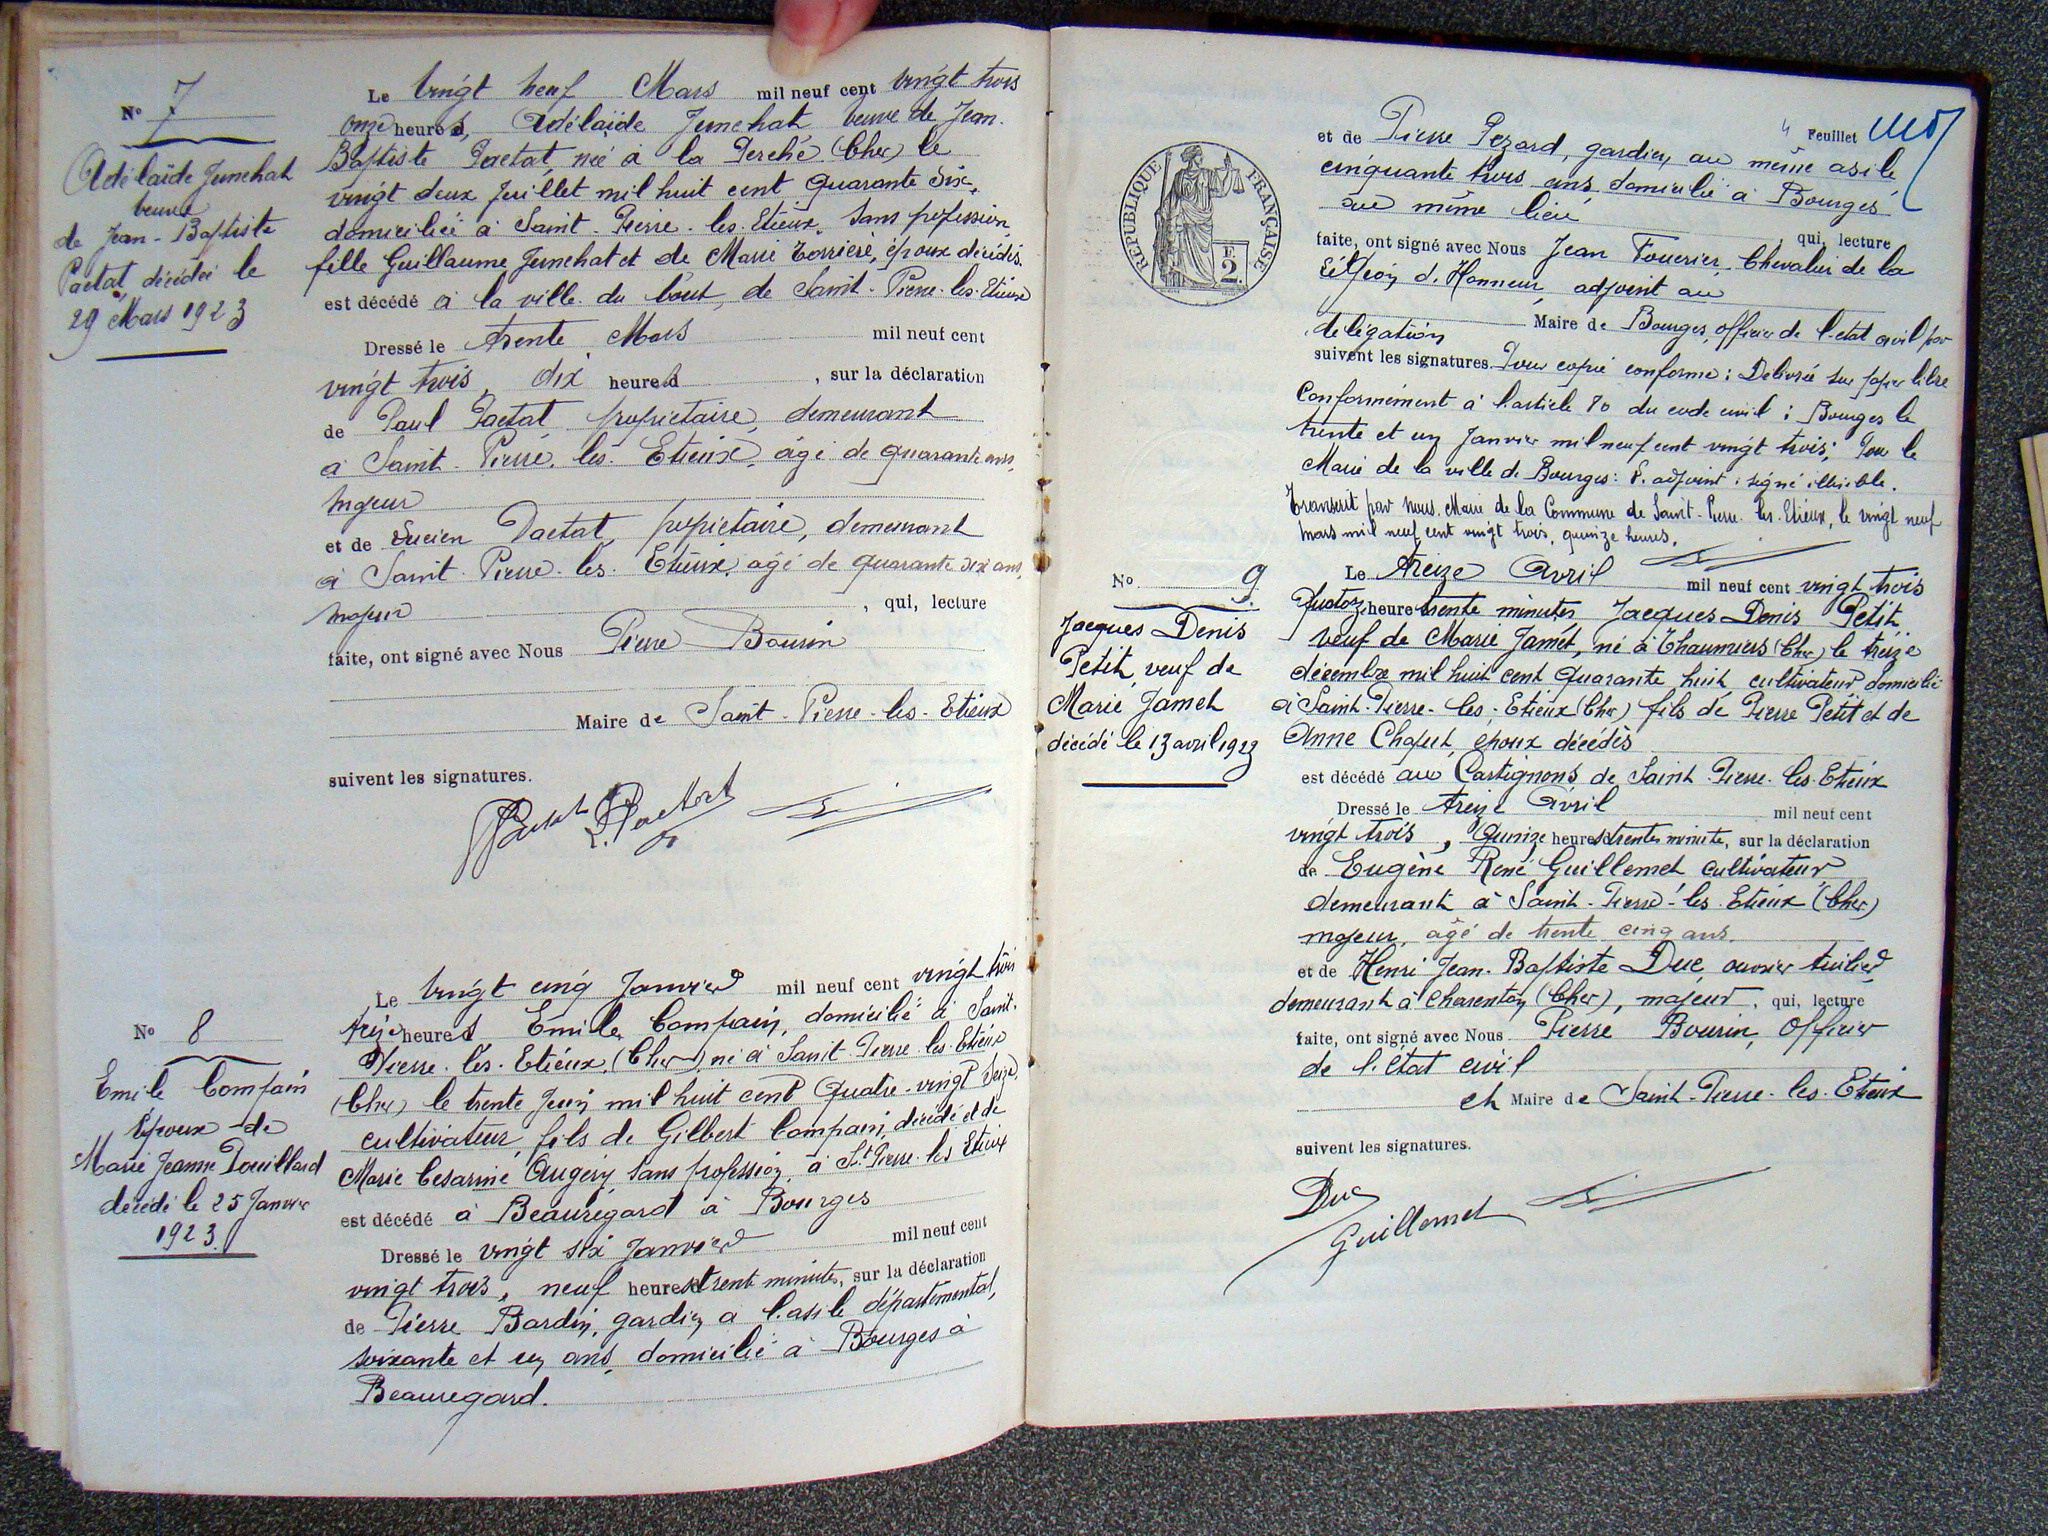 No 7
Adélaïde Jumehat
veuve
de Jean-Baptiste
Pactat décédée le
29 Mars 1923
Le vingt neuf Mars mil neuf cent vingt trois
onze heures, Adélaïde Jumehat veuve de Jean-
Baptiste Pactat, née à la Perche (Cher) le
vingt deux juillet mil huit cent quarante six,
domiciliée à Saint-Pierre-les-Etieux, sans profession,
fille Guillaume Jumehat et de Marie Terrière, époux décédés
est décédé à la ville du bout, de Saint-Pierre-les-Etieux
Dressé le trente Mars mil neuf cent
vingt trois, dix heures, sur la déclaration
de Paul Pactat, propriétaire, demeurant
à Saint-Pierre-les-Etieux, âgé de quarante ans,
majeur
et de Lucien Pactat, propriétaire, demeurant
à Saint-Pierre-les-Etieux, âgé de quarante six ans,
majeur, qui, lecture
faite, ont signé avec Nous Pierre Bourin
Maire de Saint-Pierre-les-Etieux
suivent les signatures.
Pactat L. Pactat
No 8
Emile Compain
Epoux de
Marie Jeanne Douillard
décédé le 25 Janvier
1923.
Le vingt cinq Janvier mil neuf cent vingt trois
treize heures Emile Compain, domicilié à Saint-
Pierre-les-Etieux, (Cher), né à Saint-Pierre-les-Etieux
(Cher) le trente Juin mil huit cent quatre-vingt seize,
cultivateur, fils de Gilbert Compain, décédé et de
Marie Cesarine Augery sans profession, à St Pierre-les-Etieux
est décédé à Beauregard à Bourges
Dressé le vingt six Janvier mil neuf cent
vingt trois, neuf heures trente minutes, sur la déclaration
de Pierre Bardin, gardien à l'asile départemental,
soixante et un ans, domicilié à Bourges à
Beauregard.
4 Feuillet
RÉPUBLIQUE FRANÇAISE
F. 2.
et de Pierre Pezard, gardien au même asile
cinquante trois ans domicilié à Bourges
au même lieu, qui, lecture
faite, ont signé avec Nous Jean Fournier, Chevalier de la
Légion d'Honneur, adjoint au
Maire de Bourges, officier de l'état civil par
delégation
suivent les signatures. Pour copie conforme : Délivrée sur papier libre
Conformément à l'article 80 du code civil ; Bourges le
trente et un Janvier mil neuf cent vingt trois ; Pour le
Maire de la ville de Bourges : L'adjoint : signé illisible.
Transcrit par nous, Maire de la Commune de Saint-Pierre-les-Etieux, le vingt neuf
mars mil neuf cent vingt trois, quinze heures.
No 9.
Jacques Denis
Petit, veuf de
Marie Jamet
décédé le 13 avril 1923
Le treize Avril mil neuf cent vingt trois
quatorze heure trente minutes Jacques Denis Petit
veuf de Marie Jamet, né à Thaumiers (Cher) le treize
décembre mil huit cent quarante huit cultivateur domicilié
à Saint-Pierre-les-Etieux (Cher) fils de Pierre Petit et de
Anne Chaput, époux décédés
est décédé aux Castignons de Saint-Pierre-les-Etieux
Dressé le treize Avril mil neuf cent
vingt trois, quinze heures trente minute, sur la déclaration
de Eugène René Guillemet cultivateur
demeurant à Saint-Pierre-les-Etieux (Cher)
majeur, âgé de trente cinq ans.
et de Henri Jean-Baptiste Duc, ouvrier tuilier
demeurant à Charenton (Cher), majeur, qui, lecture
faite, ont signé avec Nous Pierre Bourin, Officier
de l'état civil
et Maire de Saint-Pierre-les-Etieux
suivent les signatures.
Duc
Guillemet